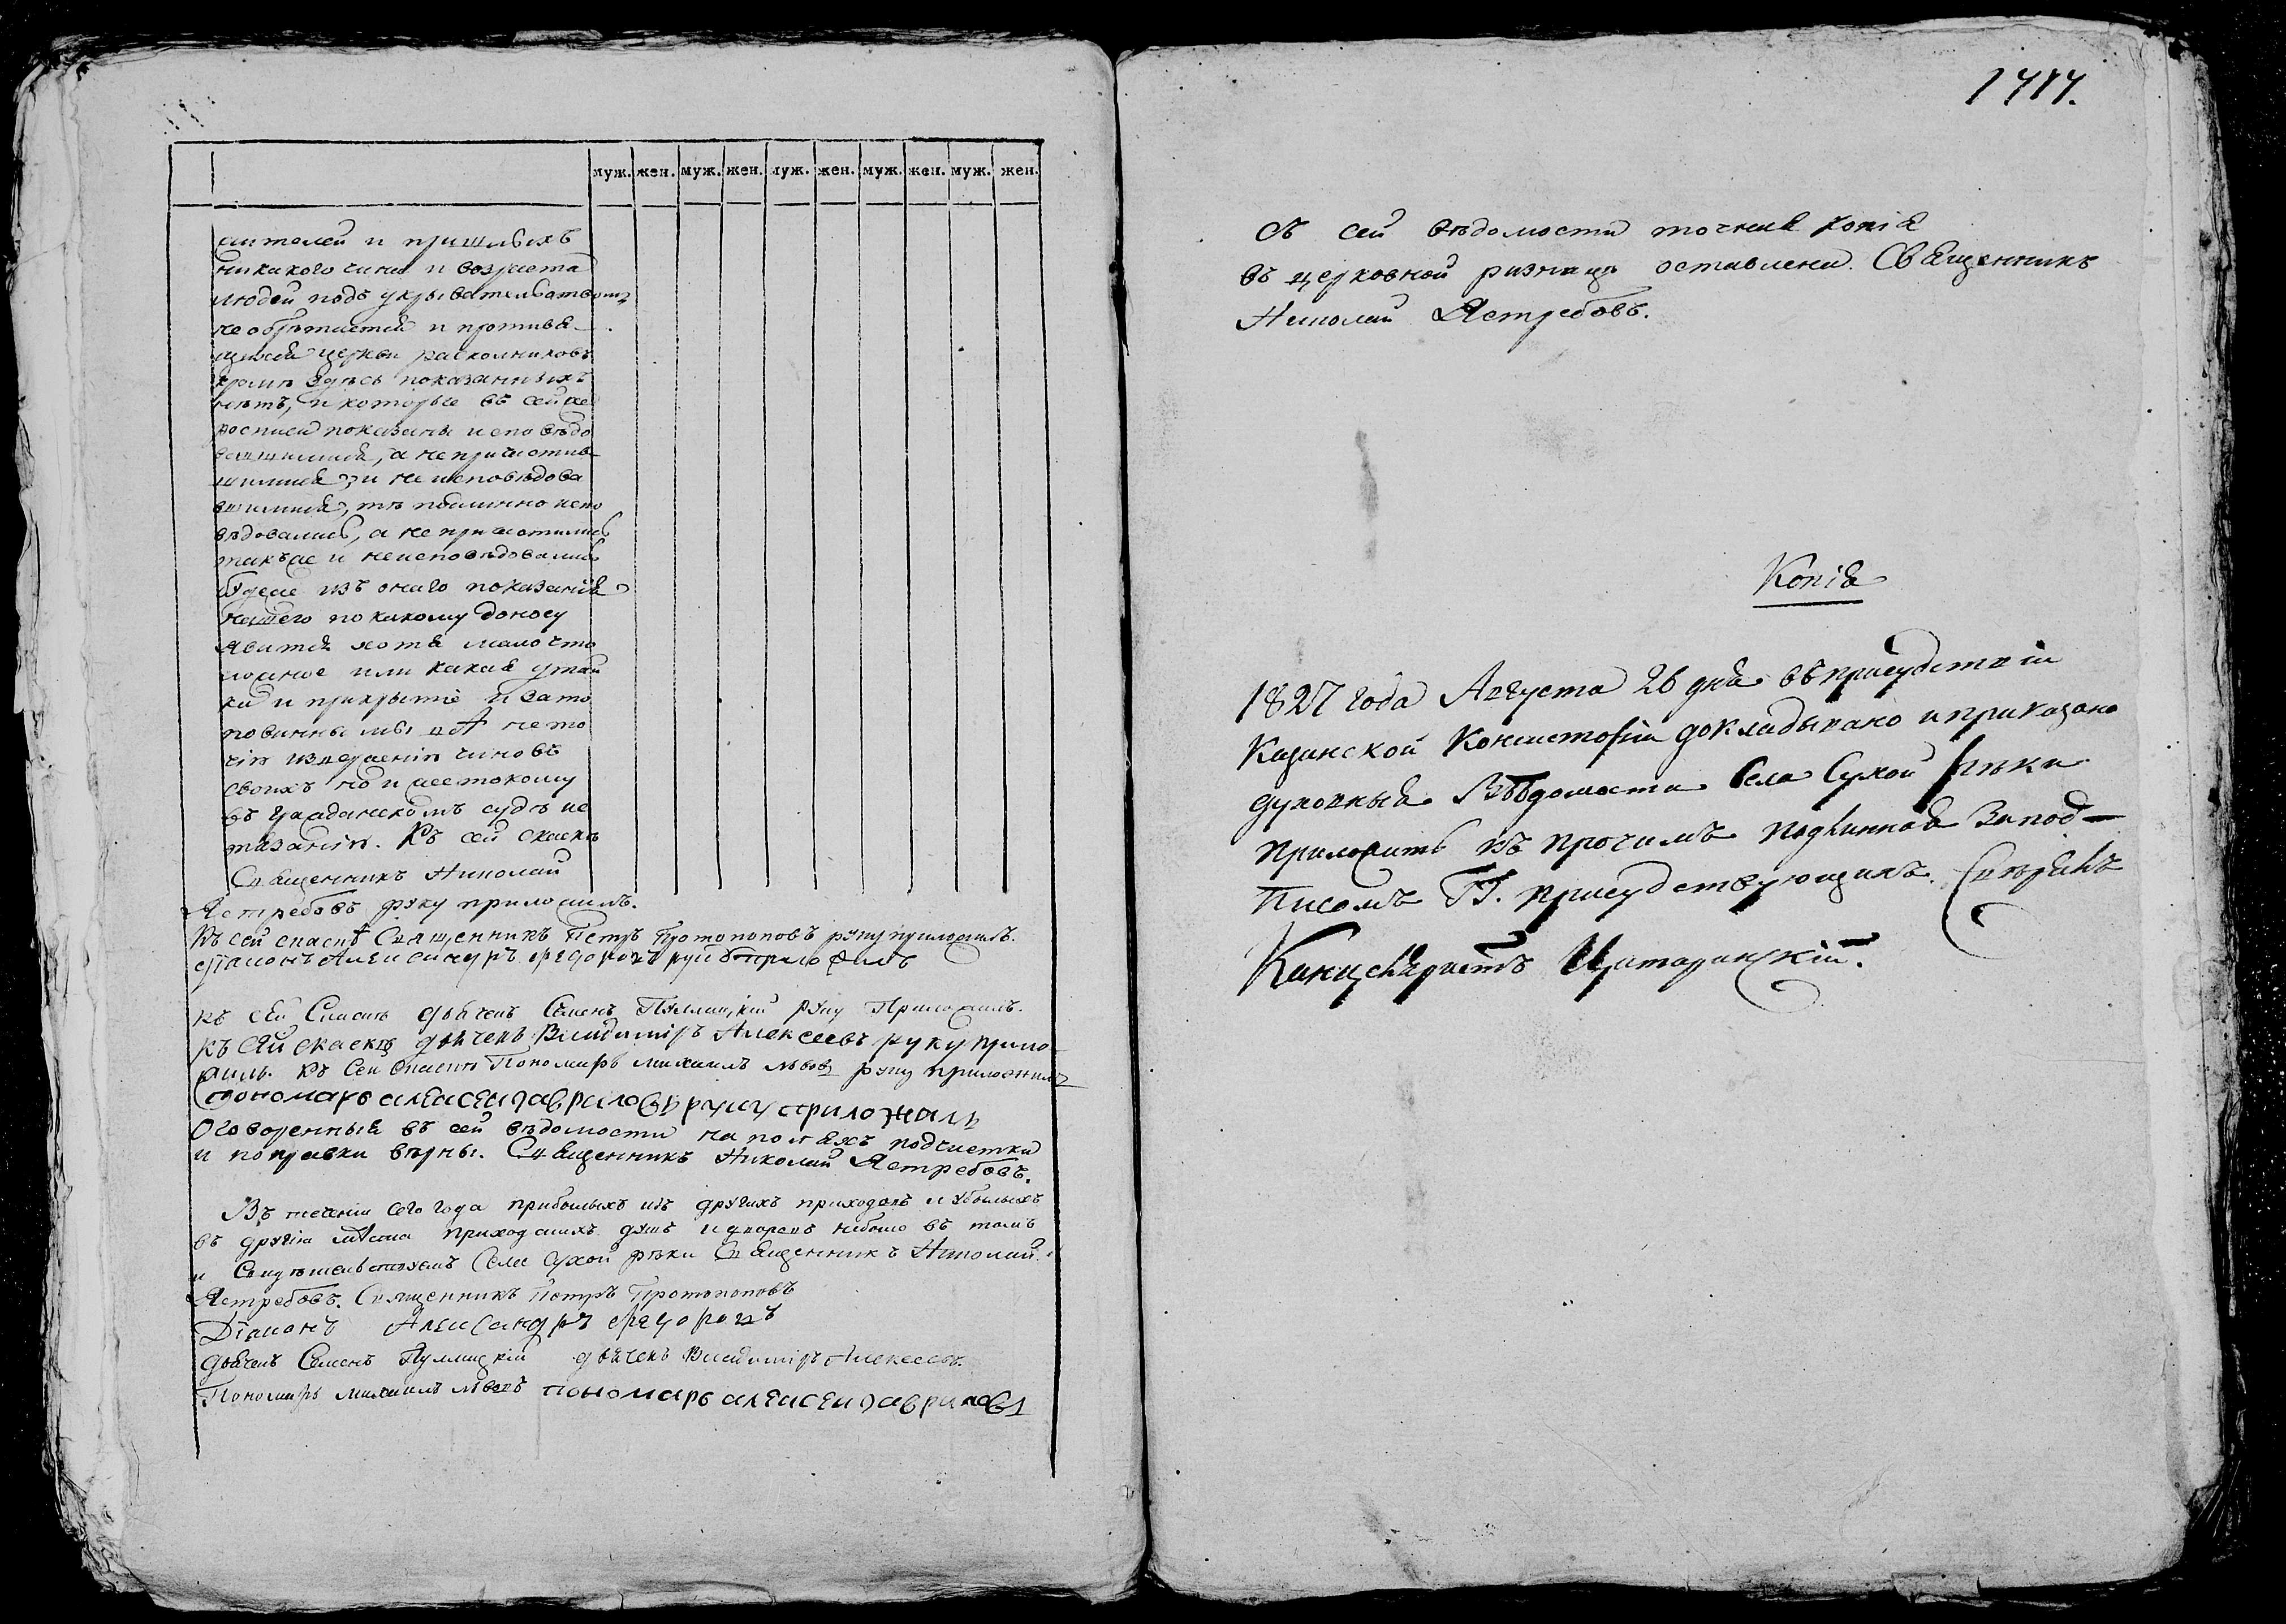 муж. жен. муж. жен. муж. жен. муж. жен. муж. жен.
жителей и пришлыхъ
никакого чина и возраста
людей подъ укрывательствомъ
не обрѣтается и противя-
щихся церкви раскольниковъ
кромѣ здѣсь показанныхъ
нѣтъ, и которые въ сей же
росписи показаны исповѣдо
вавшимися, а не причастив-
шимися, и не исповѣдова
вшимися, тѣ подлинно испо
вѣдовались, а не причастились
также и неисповѣдовались
Буде изъ онаго показанія
нашего по какому доносу
явится хотя мало что
ложное или какая утай
ка и прикрытіе и за то
повинны мы не то
чію изверженію чиновъ
своихъ но и жестокому
въ гражданскомъ судѣ ис
тязанію. Къ сей сказкѣ
Священникъ Николай
Ястребовъ руку приложилъ.
Къ сей сказкѣ Священникъ Петръ Протопоповъ руку приложилъ.
діаконъ Александръ Федоровъ руку приложилъ
къ сей Сказкѣ дьячекъ Семенъ руку Приложилъ.
къ сей сказкѣ дьячекъ Владиміръ Алексеевъ руку прило-
жилъ. Къ сей сказкѣ Пономарь михаилъ львовъ руку приложилъ
пономарь алексеи гавриловъ руку приложилъ
Оговоренныя въ сей вѣдомости на поляхъ подчистки
и поправки вѣрны. Священникъ Николай Ястребовъ.
Въ теченіи сего года прибылыхъ изъ другихъ приходовъ и убылыхъ
въ другія мѣста приходскихъ душъ и дворовъ небыло въ томъ
и Свидѣтельствуемъ Села Сухой рѣки Священникъ Николай
Ястребовъ. Священникъ Петръ Протопоповъ
Діаконъ Александръ Федоровъ
дьячекъ Семенъ дьячекъ Владиміръ Алексеевъ.
Пономарь михаилъ львовъ пономарь алексеи гавриловъ
1717.
Съ сей вѣдомости точная копія
въ церковной ризницѣ оставлена. Священникъ
Николай Ястребовъ.
Копія
1827 года Августа 26 дня въ присудствіи
Казанской Консисторіи докладывано и приказано
духовныя Вѣдомости Села Сухой рѣки
приложить къ прочимъ подлинная За под-
писомъ ГГ. присудствующихъ. Скрѣпилъ
Канцеляристъ